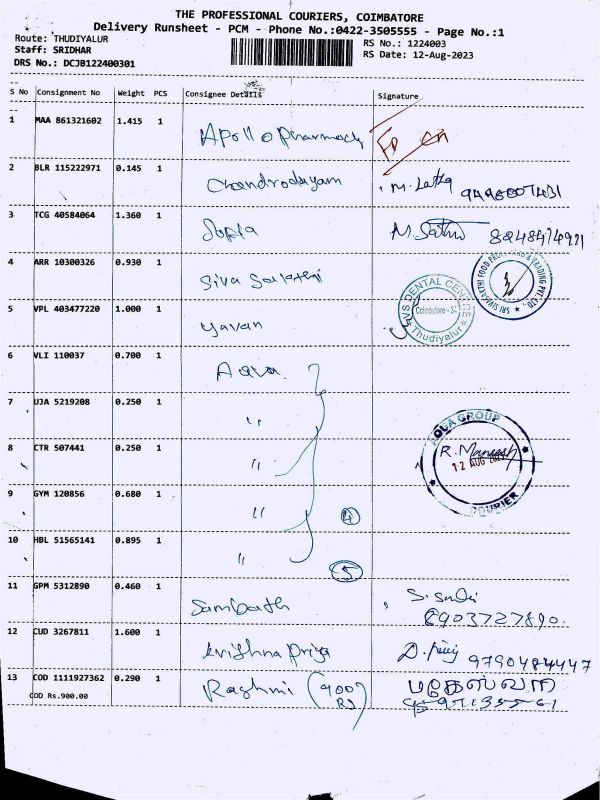 THE PROFESSIONAL COURIERS, COIMBATORE
Delivery Runsheet - PCM - Phone No.:0422-3505555 - Page No.:1
Route: THUDIYALUR
Staff: SRIDHAR
DRS No.: DCJB122400301
RS No.: 1224003
RS Date: 12-Aug-2023
S No Consignment No Weight PCS Consignee Details Signature
1 MAA 861321602 1.415 1 Apollo Pharmacy
2 BLR 115222971 0.145 1 Chandrodayam M. Latha
3 TCG 40584064 1.360 1 M. 
4 ARR 10300326 0.930 1 Siva
SRI SIVASAKTHI FOOD PRODUCTS & TRADING PVT. LTD.
5 VPL 403477220 1.000 1 Yavan
DENTAL CENTRE
Coimbatore
Thudiyalur
6 VLI 110037 0.700 1 Aqua
7 UJA 5219208 0.250 1 "
AQUA GROUP
R.
12 AUG
COURIER
8 CTR 507441 0.250 1 "
9 GYM 120856 0.680 1 " 4
10 HBL 51565141 0.895 1 " 5
11 GPM 5312890 0.460 1 Sambath S.
8903727890.
12 CUD 3267811 1.600 1 Krishna Priya D. 9790484447
13 COD 1111927362 0.290 1 Rashmi (900 Rs)
COD Rs.900.00